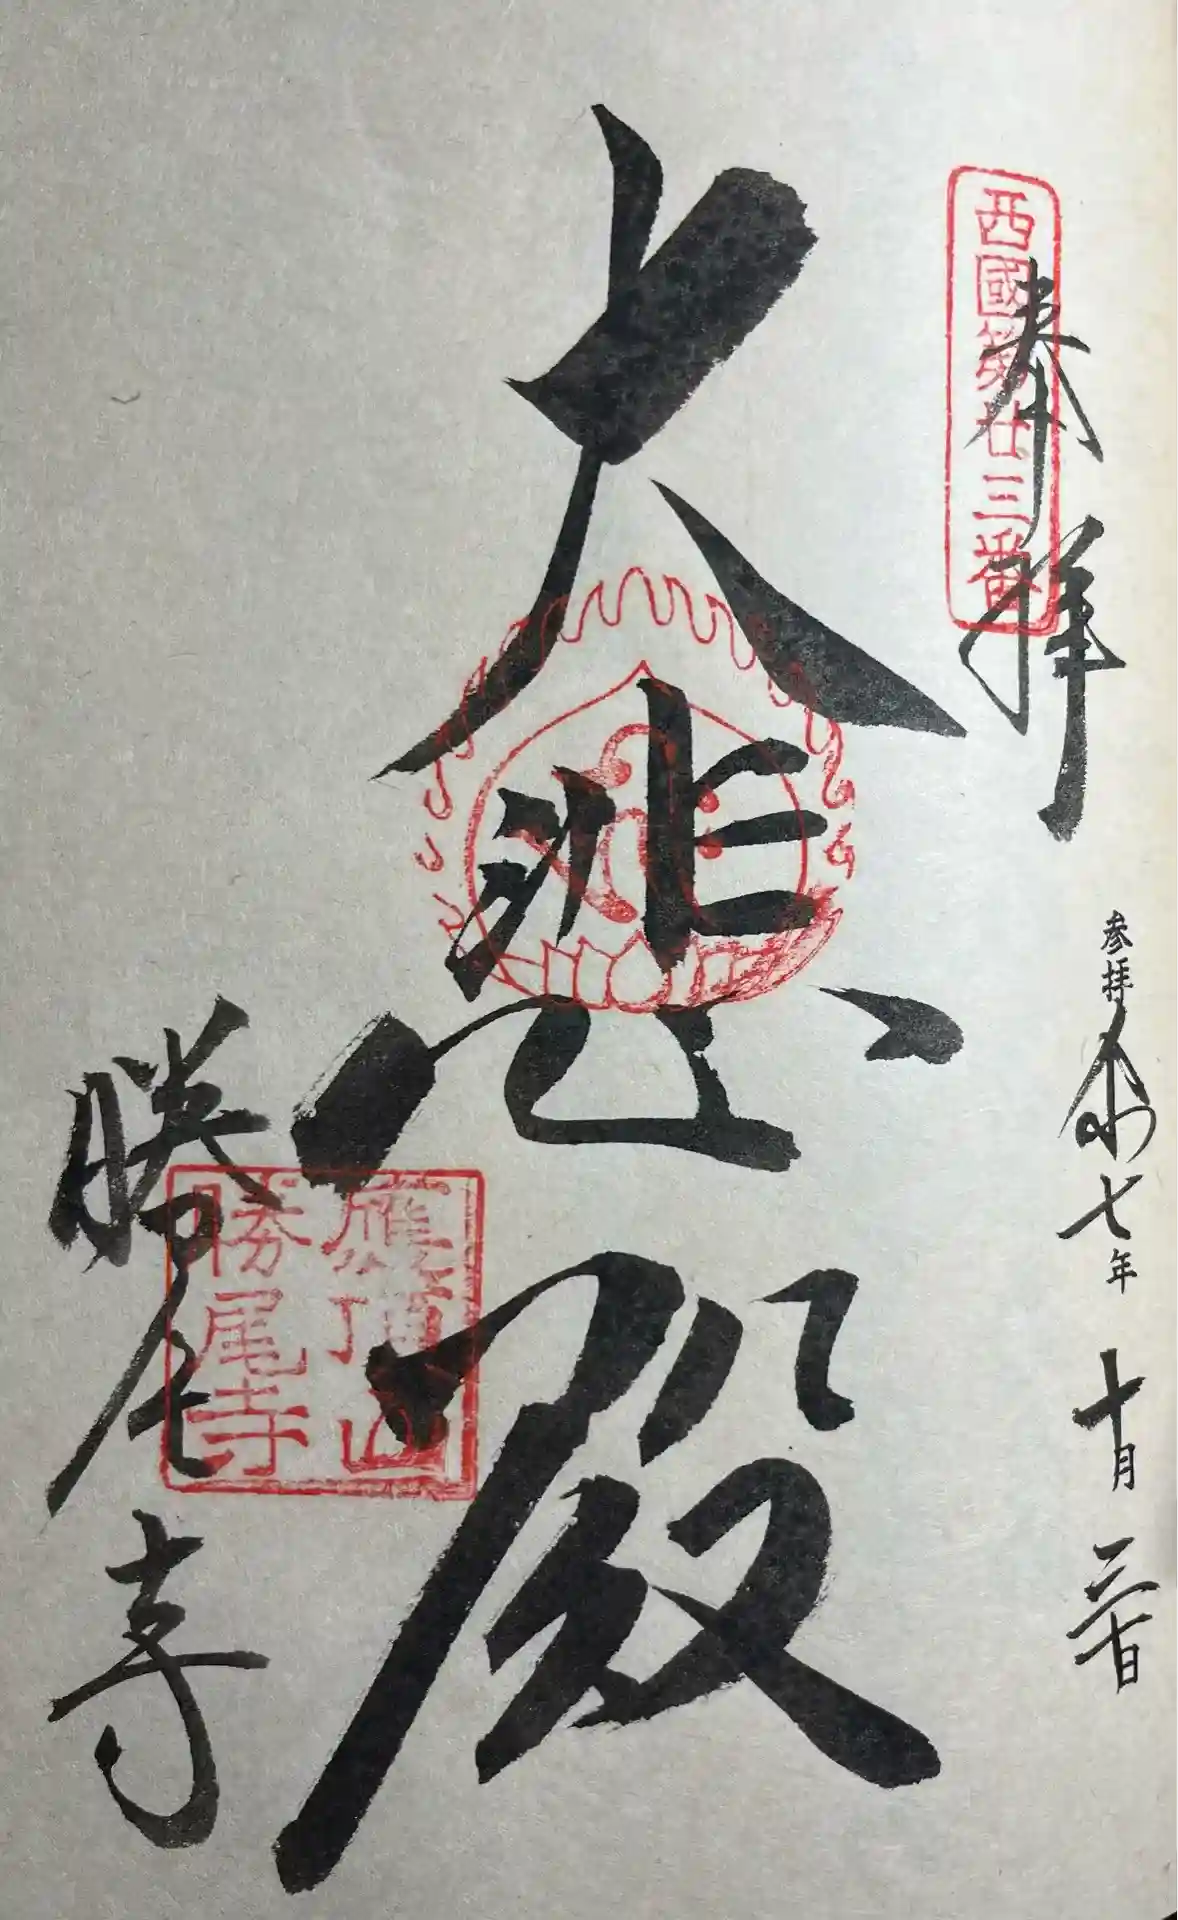 奉拝
西國第廿三番
参拝令和七年十月二十日
大悲殿
應頂山
勝尾寺
勝尾寺